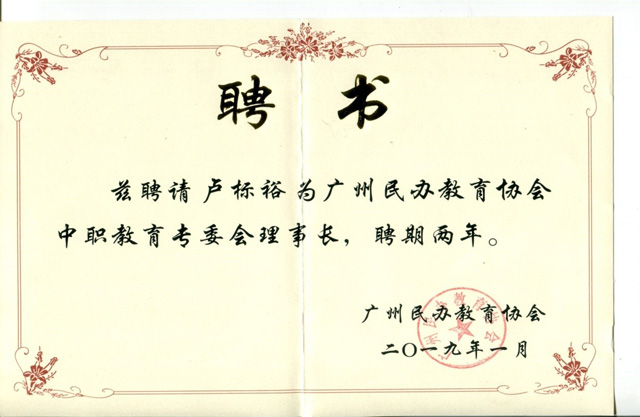 聘书
兹聘请卢标裕为广州民办教育协会
中职教育专委会理事长，聘期两年。
广州民办教育协会
二〇一九年一月
广州民办教育协会